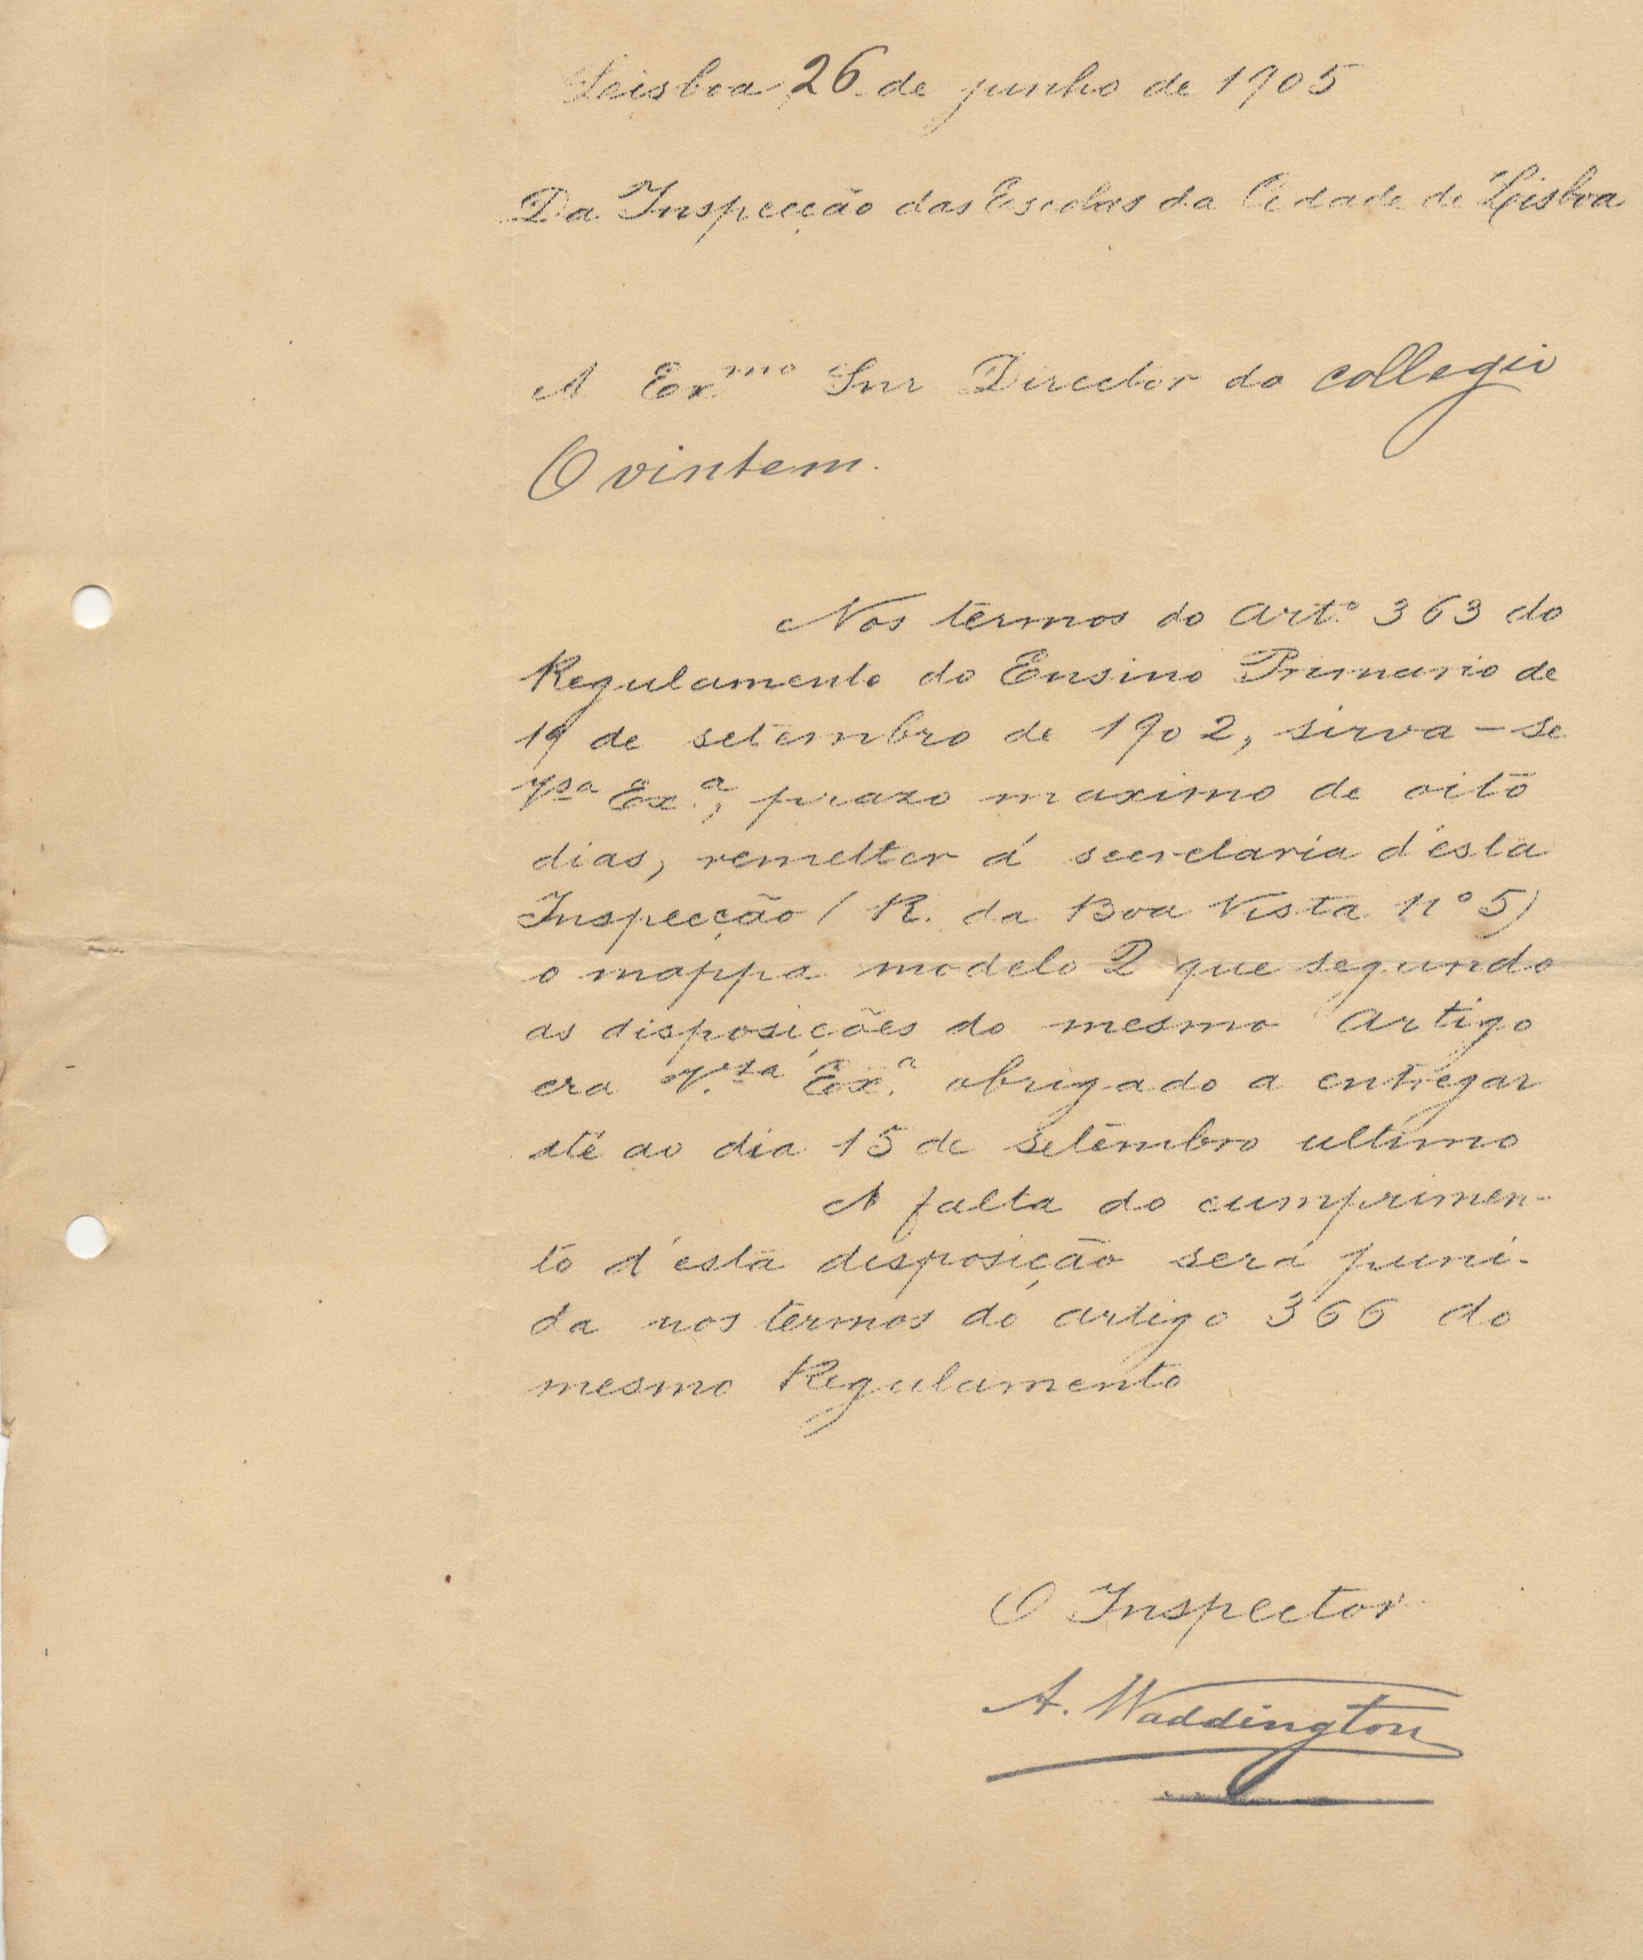 Lisboa 26 de junho de 1905
Da Inspecção das Escolas da Cidade de Lisboa
A Ex.mo Snr Director do collegio
O vintem.
Nos termos do Art.º 363 do
Regulamento do Ensino Primario de
19 de setembro de 1902, sirva-se
V.sa Ex.a, prazo maximo de oito
dias, remetter á secretaria d'esta
Inspecção (R. da Boa Vista nº 5)
o mappa modelo 2 que segundo
as disposições do mesmo Artigo
era V.sa Ex.a obrigado a entregar
até ao dia 15 de setembro ultimo
A falta do cumprimen-
to d'esta disposição será puni-
da nos termos do artigo 366 do
mesmo Regulamento
O Inspector
A. Waddington